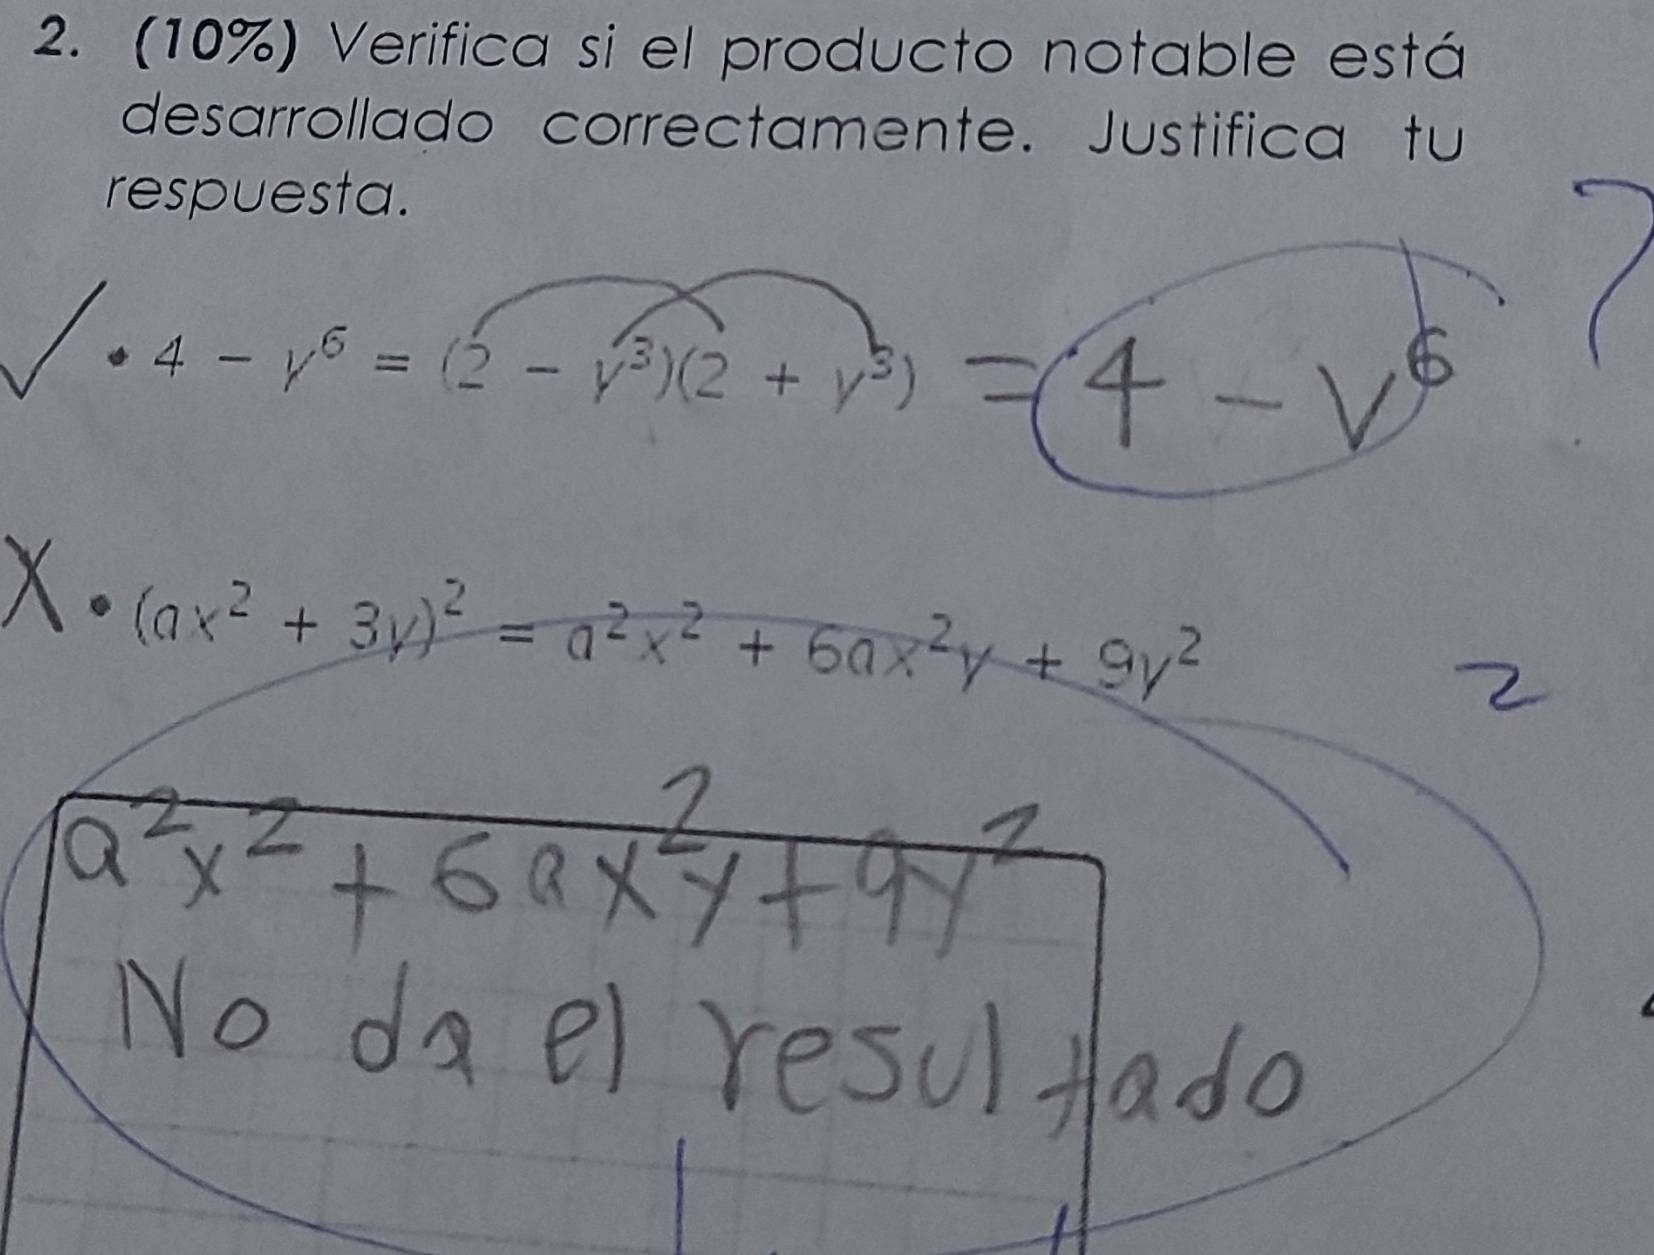 2. (10%) Verifica si el producto notable está
desarrollado correctamente. Justifica tu
respuesta.
?
✓ • 4 - y⁶ = (2 - y³)(2 + y³) = 4 - y⁶
X • (ax² + 3y)² = a²x² + 6ax²y + 9y²
2
a²x² + 6ax²y + 9y²
No da el resultado